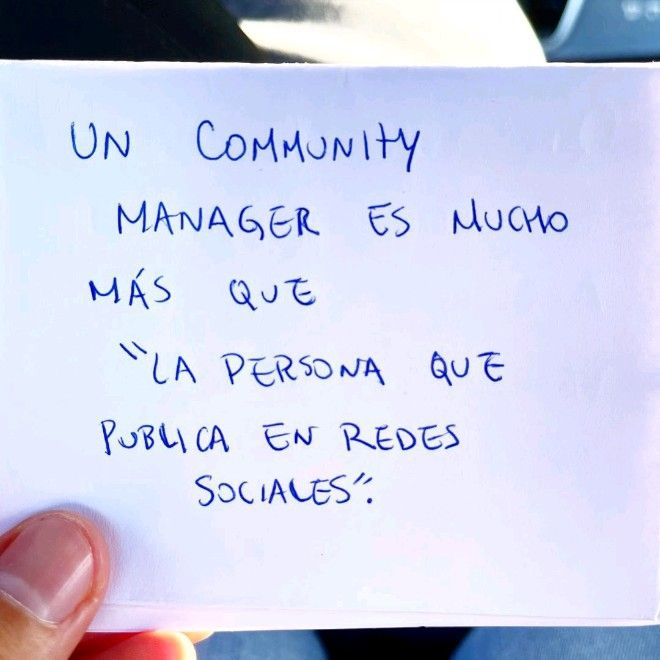 UN COMMUNITY
MANAGER ES MUCHO
MÁS QUE
"LA PERSONA QUE
PUBLICA EN REDES
SOCIALES".